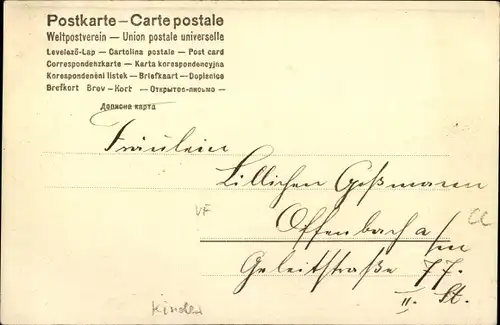 Postkarte – Carte postale
Weltpostverein — Union postale universelle
Levelező-Lap — Cartolina postale — Post card
Correspondenzkarte — Karta korespondencyjna
Korespondenční lístek — Briefkaart — Dopisnice
Brefkort Brev-Kort — Открытое письмо —
Дописна карта
Fräulein
Lillichen Goßmann
VF
Cl
Offenbach a/m
Geleitstraße 77.
II. St.
Kinder